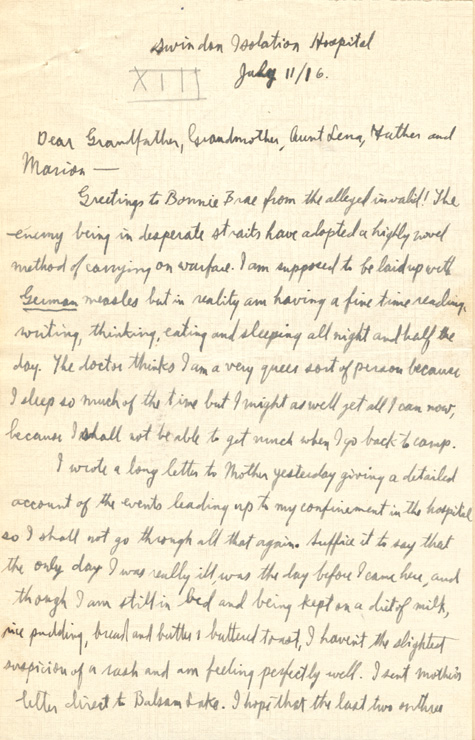 Swindon Isolation Hospital
XIII
July 11/16.
Dear Grandfather, Grandmother, Aunt Lena, Father and
Marion —
Greetings to Bonnie Brae from the alleged invalid! The
enemy being in desperate straits have adopted a highly novel
method of carrying on warfare. I am supposed to be laid up with
German measles but in reality am having a fine time reading,
writing, thinking, eating and sleeping all night and half the
day. The doctor thinks I am a very queer sort of person because
I sleep so much of the time but I might as well get all I can now,
because I shall not be able to get much when I go back to camp.
I wrote a long letter to Mother yesterday giving a detailed
account of the events leading up to my confinement in the hospital
so I shall not go through all that again. Suffice it to say that
the only day I was really ill was the day before I came here, and
though I am still in bed and being kept on a diet of milk,
rice pudding, bread and butter & buttered toast, I haven't the slightest
suspicion of a rash and am feeling perfectly well. I sent mother's
letter direct to Balsam Lake. I hope that the last two or three